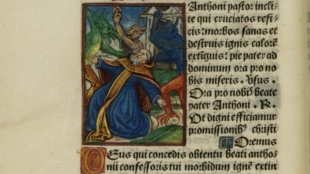 Anthoni pastor incli-
te qui cruciatos refi-
cis: morbos sanas et
destruis ignis calorē
extīguis: pie pater ad
dominum ora pro no
bis miseris. Vſus.
Ora pro nobis beate
pater Anthoni. R.
Ut digni efficiamur
promissionibꝰ christi
Oremus
Deus qui concedis obtentu beati antho-
nii confessoris tui morbidum ignē extin